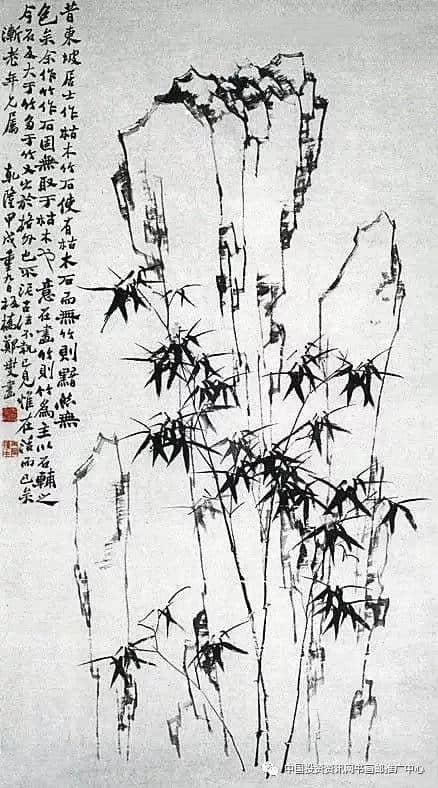 昔東坡居士作枯木竹石使有枯木石而無竹則黯然無
色矣余作竹作石固無取于枯木也意在畫竹則竹為主以石輔之
今石反大于竹多于竹又出於格外也不泥古法不執己見惟在活而已矣
漸老年兄屬 乾隆甲戌重九日板橋鄭燮畫
中国投资资讯网书画邮推广中心